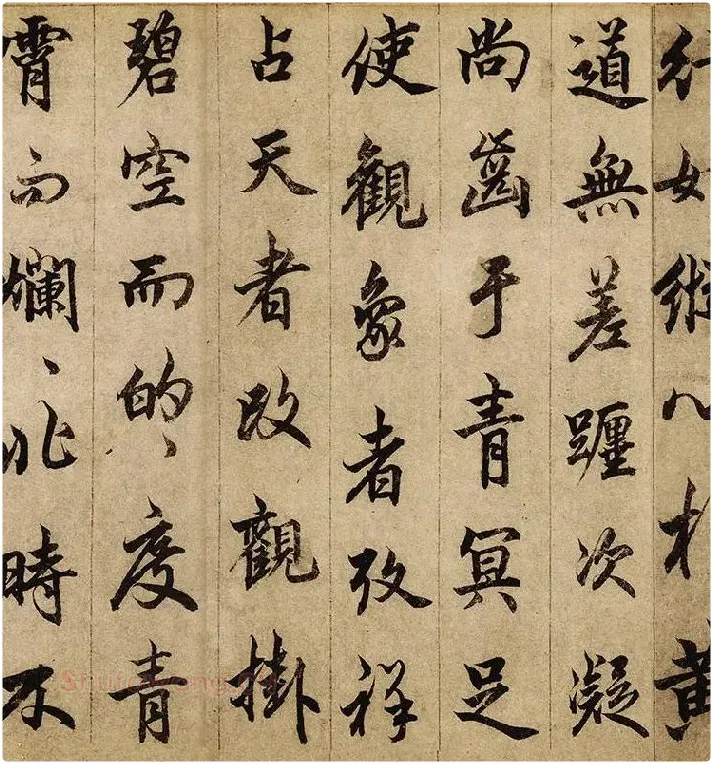 黄
道無差躔次凝
尚齒于青冥足
使觀象者攷祥
占天者改觀掛
碧空而的〻度青
霄而爛〻非時不